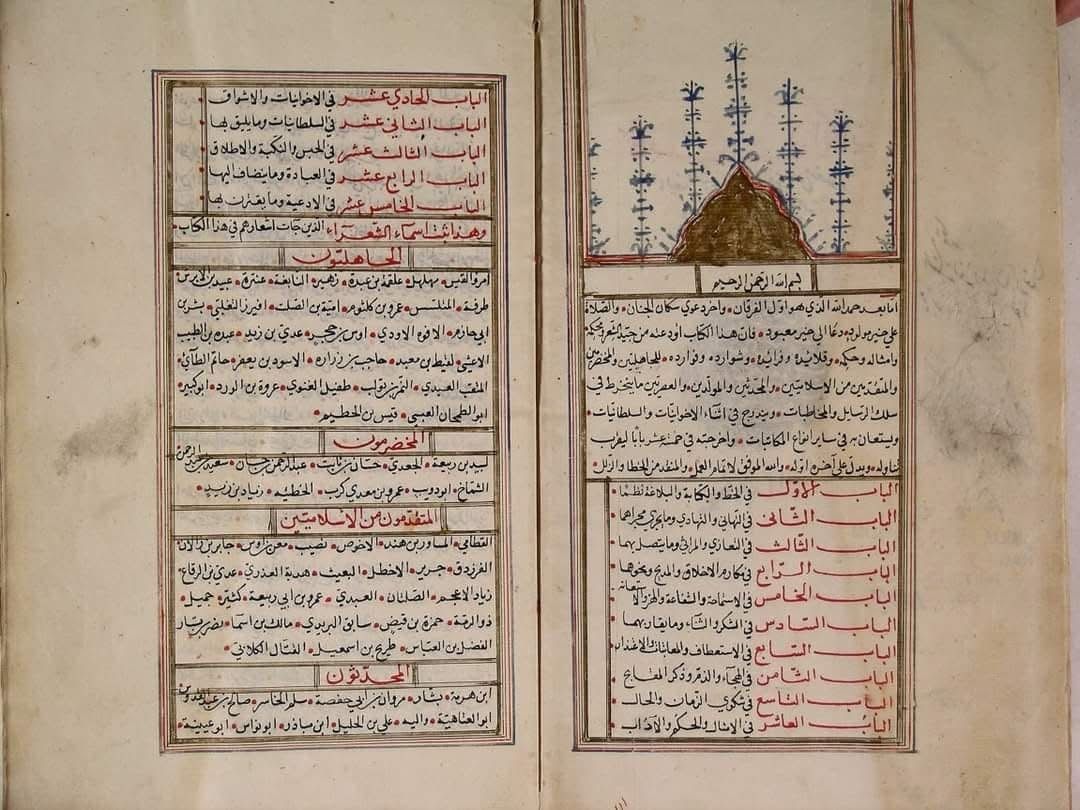 بسم الله الرحمن الرحيم
اما بعد حمد الله الذي هو اول الفرقان واخر دعوي سكان الجنان والصلاة
علي خير مولود دعا الي خير معبود فان هذا الكتاب اودعته من جيد الشعر ومحكمه
وامثاله وحكمه وقلايده وفرايده وشوارده وفوارده للجاهليين والمخضرمين
والمتقدمين من الاسلاميين والمحدثين والمولدين والعصريين ما ينخرط في
سلك الرسايل والمخاطبات ويندرج في اثناء الاخوانيات والسلطانيات
ويستعان به في ساير انواع المكاتبات واخرجته في خمسة عشر بابا ليقرب
تناوله ويدل علي آخره اوله والله الموفق لاتمام العمل والمنقذ من الخطا والزلل
الباب الاول في الخط والكتابة والبلاغة نظما
الباب الثاني في التهاني والتهادي وما يجري مجراهما
الباب الثالث في التعازي والمراثي وما يتصل بهما
الباب الرابع في مكارم الاخلاق والمدح ونحوها
الباب الخامس في الاستماحة والشفاعة والهز والاستعانة
الباب السادس في الشكر والثناء وما يقاربهما
الباب السابع في الاستعطاف والمعاتبات والاعتذار
الباب الثامن في الهجاء والذم وذكر المقابح
الباب التاسع في شكوي الزمان والحال
الباب العاشر في الامثال والحكم والآداب
الباب الحادي عشر في الاخوانيات والاشواق
الباب الثاني عشر في السلطانيات وما يليق بها
الباب الثالث عشر في الحبس والنكبة والاطلاق
الباب الرابع عشر في العيادة وما ينضاف اليها
الباب الخامس عشر في الادعية وما يقترن بها
وهذا ثبت اسماء الشعراء الذين جات اشعارهم في هذا الكتاب
الجاهليون
امرؤ القيس مهلهل علقمة بن عبدة زهير النابغة عنترة عبيد بن الابرص
طرفة المتلمس عمرو بن كلثوم امية بن الصلت افيرز التغلبي بشر بن
ابي حازم الافوه الاودي اوس بن حجر عدي بن زيد عبده بن الطبيب
الاعشي لقيط بن معبد حاجب بن زراره الاسود بن يعفر حاتم الطائي
المثقب العبدي النمر بن تولب طفيل الغنوي عروة بن الورد ابو كبير
ابو الطمحان العبسي قيس بن الخطيم
المخضرمون
لبيد بن ربيعة الجعدي حسان بن ثابت عبد الرحمن بن حسان سعيد بن عبد الرحمن
الشماخ ابو دوب عمرو بن معدي كرب الحطئيه زياد بن زيد
المتقدمون من الاسلاميين
القطامي المساور بن هند الاخوص نصيب معن بن اوس جابر بن رالان
الفرزدق جرير الاخطل البعيث هدبة العذري عدي بن الرقاع
زياد الاعجم الصلتان العبدي عمر بن ابي ربيعة كثير جميل
ذو الرمة حمزة بن بيض سابق البربري مالك بن اسما نصر بن سيار
الفضل بن العباس طريح بن اسمعيل القتال الكلابي
المحدثون
ابن هرمة بشار مروان بن ابي حفصة سلم الخاسر صالح بن عبد القدوس
ابو العتاهية والبه علي بن الخليل ابن مناذر ابو نواس ابو عيينة